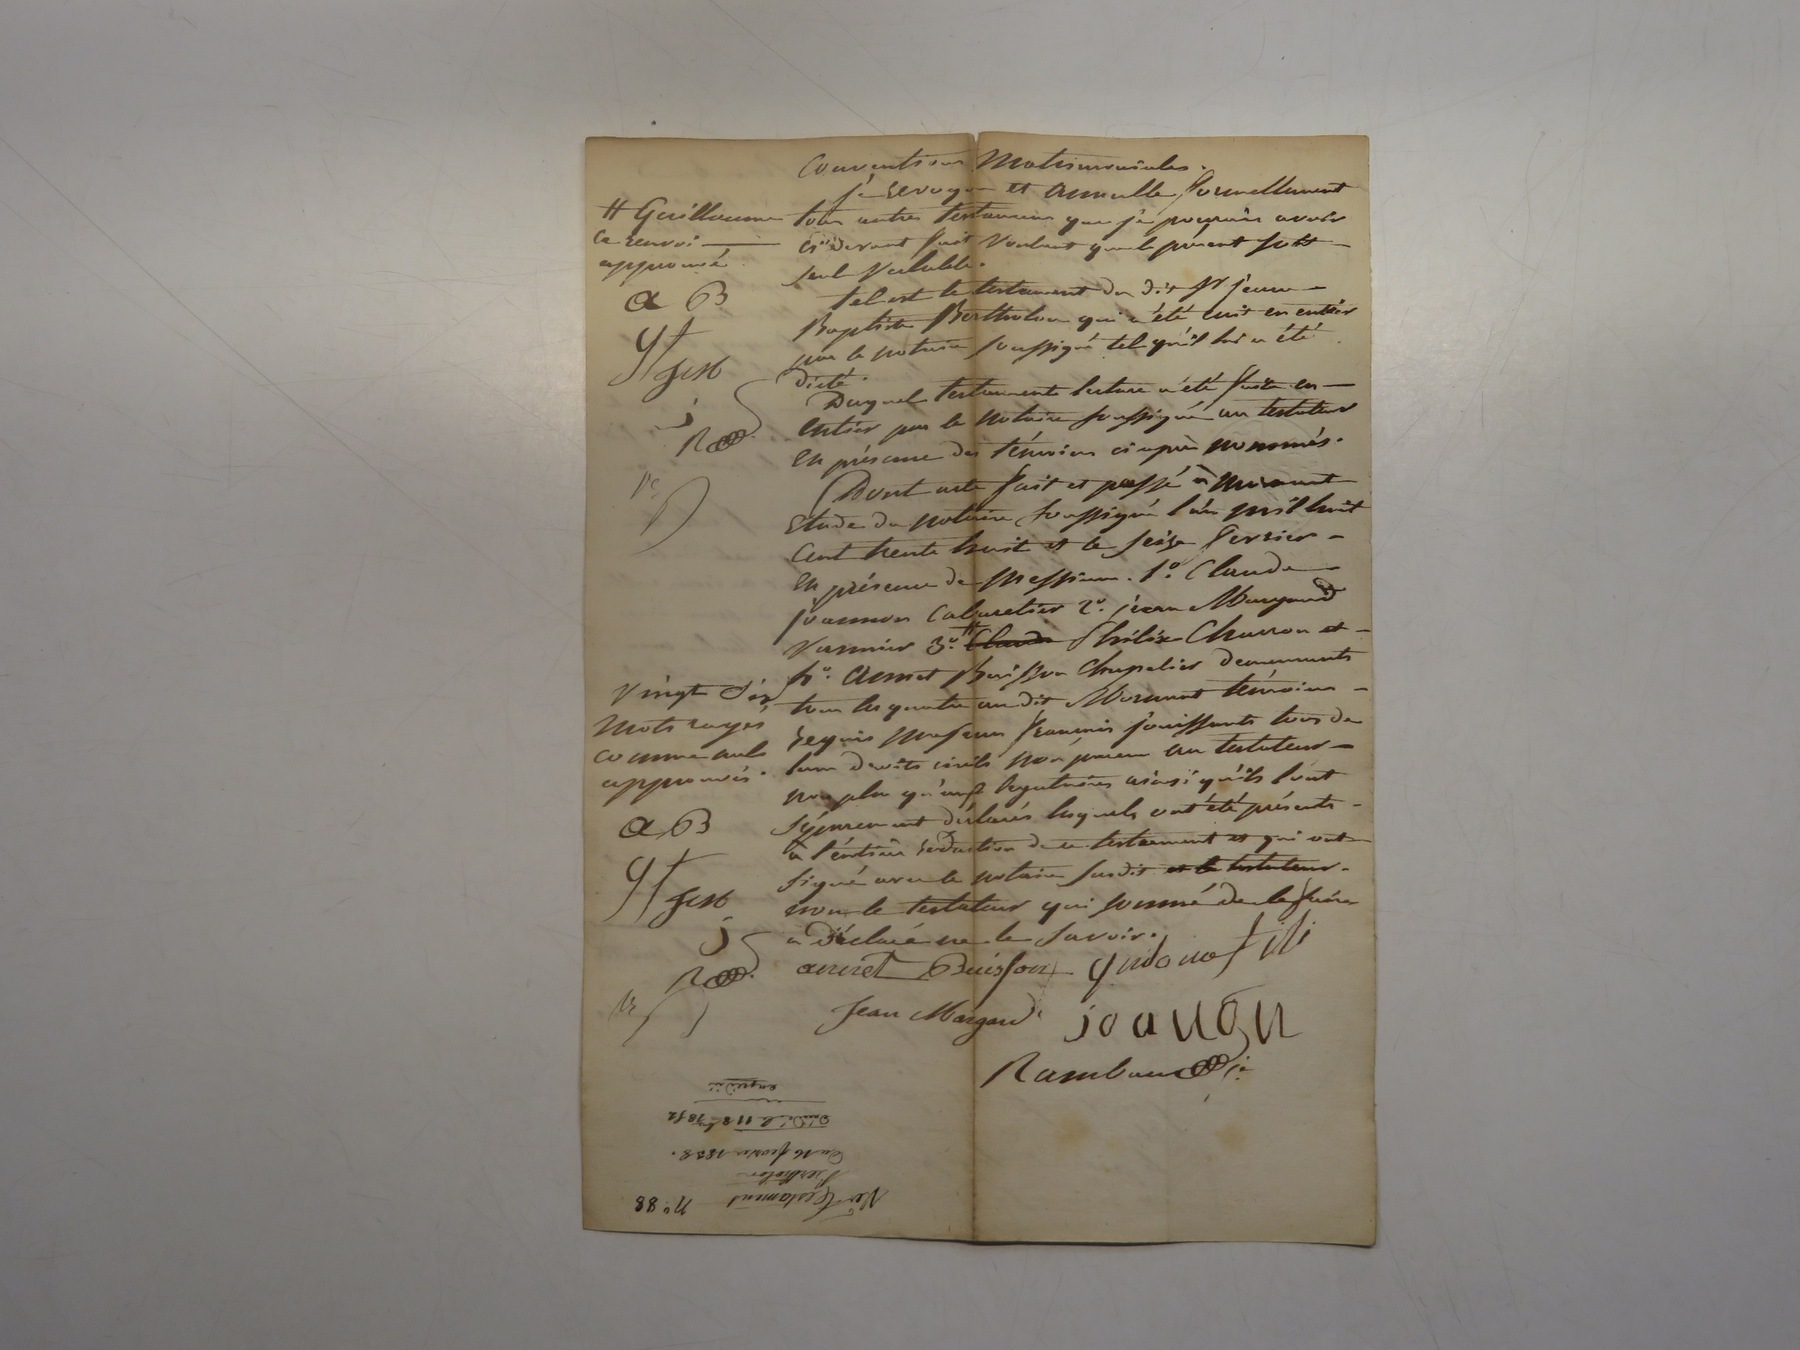 Conventions Matrimoniales.
je revoque et annulle formellement
tous autres testamens que je pourrais avoir
ci devant fait voulant que le présent soit
seul valable.
tel est le testament du dit Sr jean
Baptiste Bertholon qui a été écrit en entier
par le notaire soussigné tel qu'il lui a été
dicté.
Duquel testament lecture a été faite en
entier par le notaire soussigné au testateur
en présence des témoins ci après nommés.
Dont acte fait et passé à Mornant
Etude du notaire soussigné l'an mil huit
cent trente huit et le seize fevrier
en présence de Messieurs. 1º. Claude
joannon Cabaretier 2º. jean Margand
Vannier 3º. # Claude Philix Charron et
4º. Aimet Buisson Chapelier demeurants
tous les quatre au dit Mornant témoins
requis majeurs francais jouissants tous de
leurs droits civils non parens au testateur
non plus qu'aux legataires ainsi qu'ils l'ont
séparement déclarés lesquels ont été présents
à l'entière redaction de ce testament et qui ont
signé avec le notaire susdit et le testateur.
non le testateur qui sommé de le faire
a déclaré ne le savoir.
Buisson
Jean Margand
joanon
Rambaud
# Guillaume
ce renvoi
approuvé
a B
j
R
Vingt Six
mots rayés
comme nuls
approuvés.
a B
j
R
nº. 88
Testament
Bertholon
Du 16 fevrier 1838.